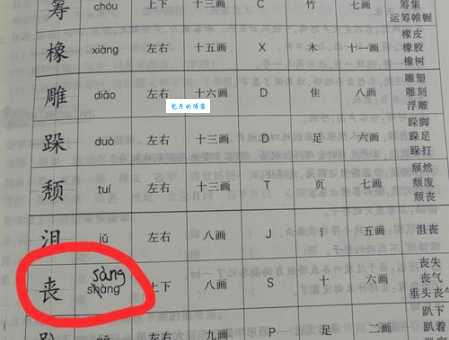 筹 chóu 上下 十三画 C 竹 七画 筹集
运筹帷幄
橡皮
橡 xiàng 左右 十五画 X 木 十一画 橡胶
橡树
雕塑
雕 diāo 左右 十六画 D 隹 八画 雕刻
浮雕
跺脚
跺 duò 左右 十三画 D 足 六画 跺足
跺打
颓然
颓 tuí 左右 十三画 T 页 七画 颓废
颓丧
沮 jǔ 左右 八画 J 氵 五画 沮丧
sàng
丧失
丧 shàng 上下 八画 S 十 六画 丧气
垂头丧气
趴下
趴 左右 九画 P 足 二画 趴着